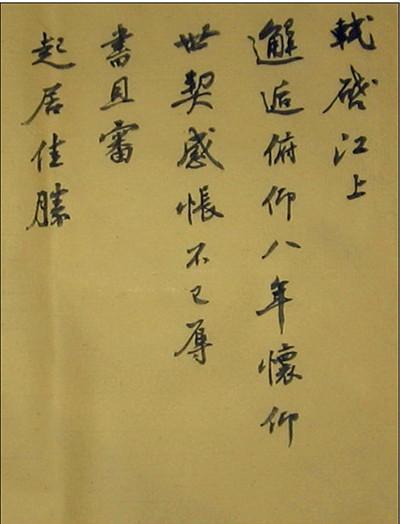 軾啓江上
邂逅俯仰八年懷仰
世契感悵不已辱
書且審
起居佳勝